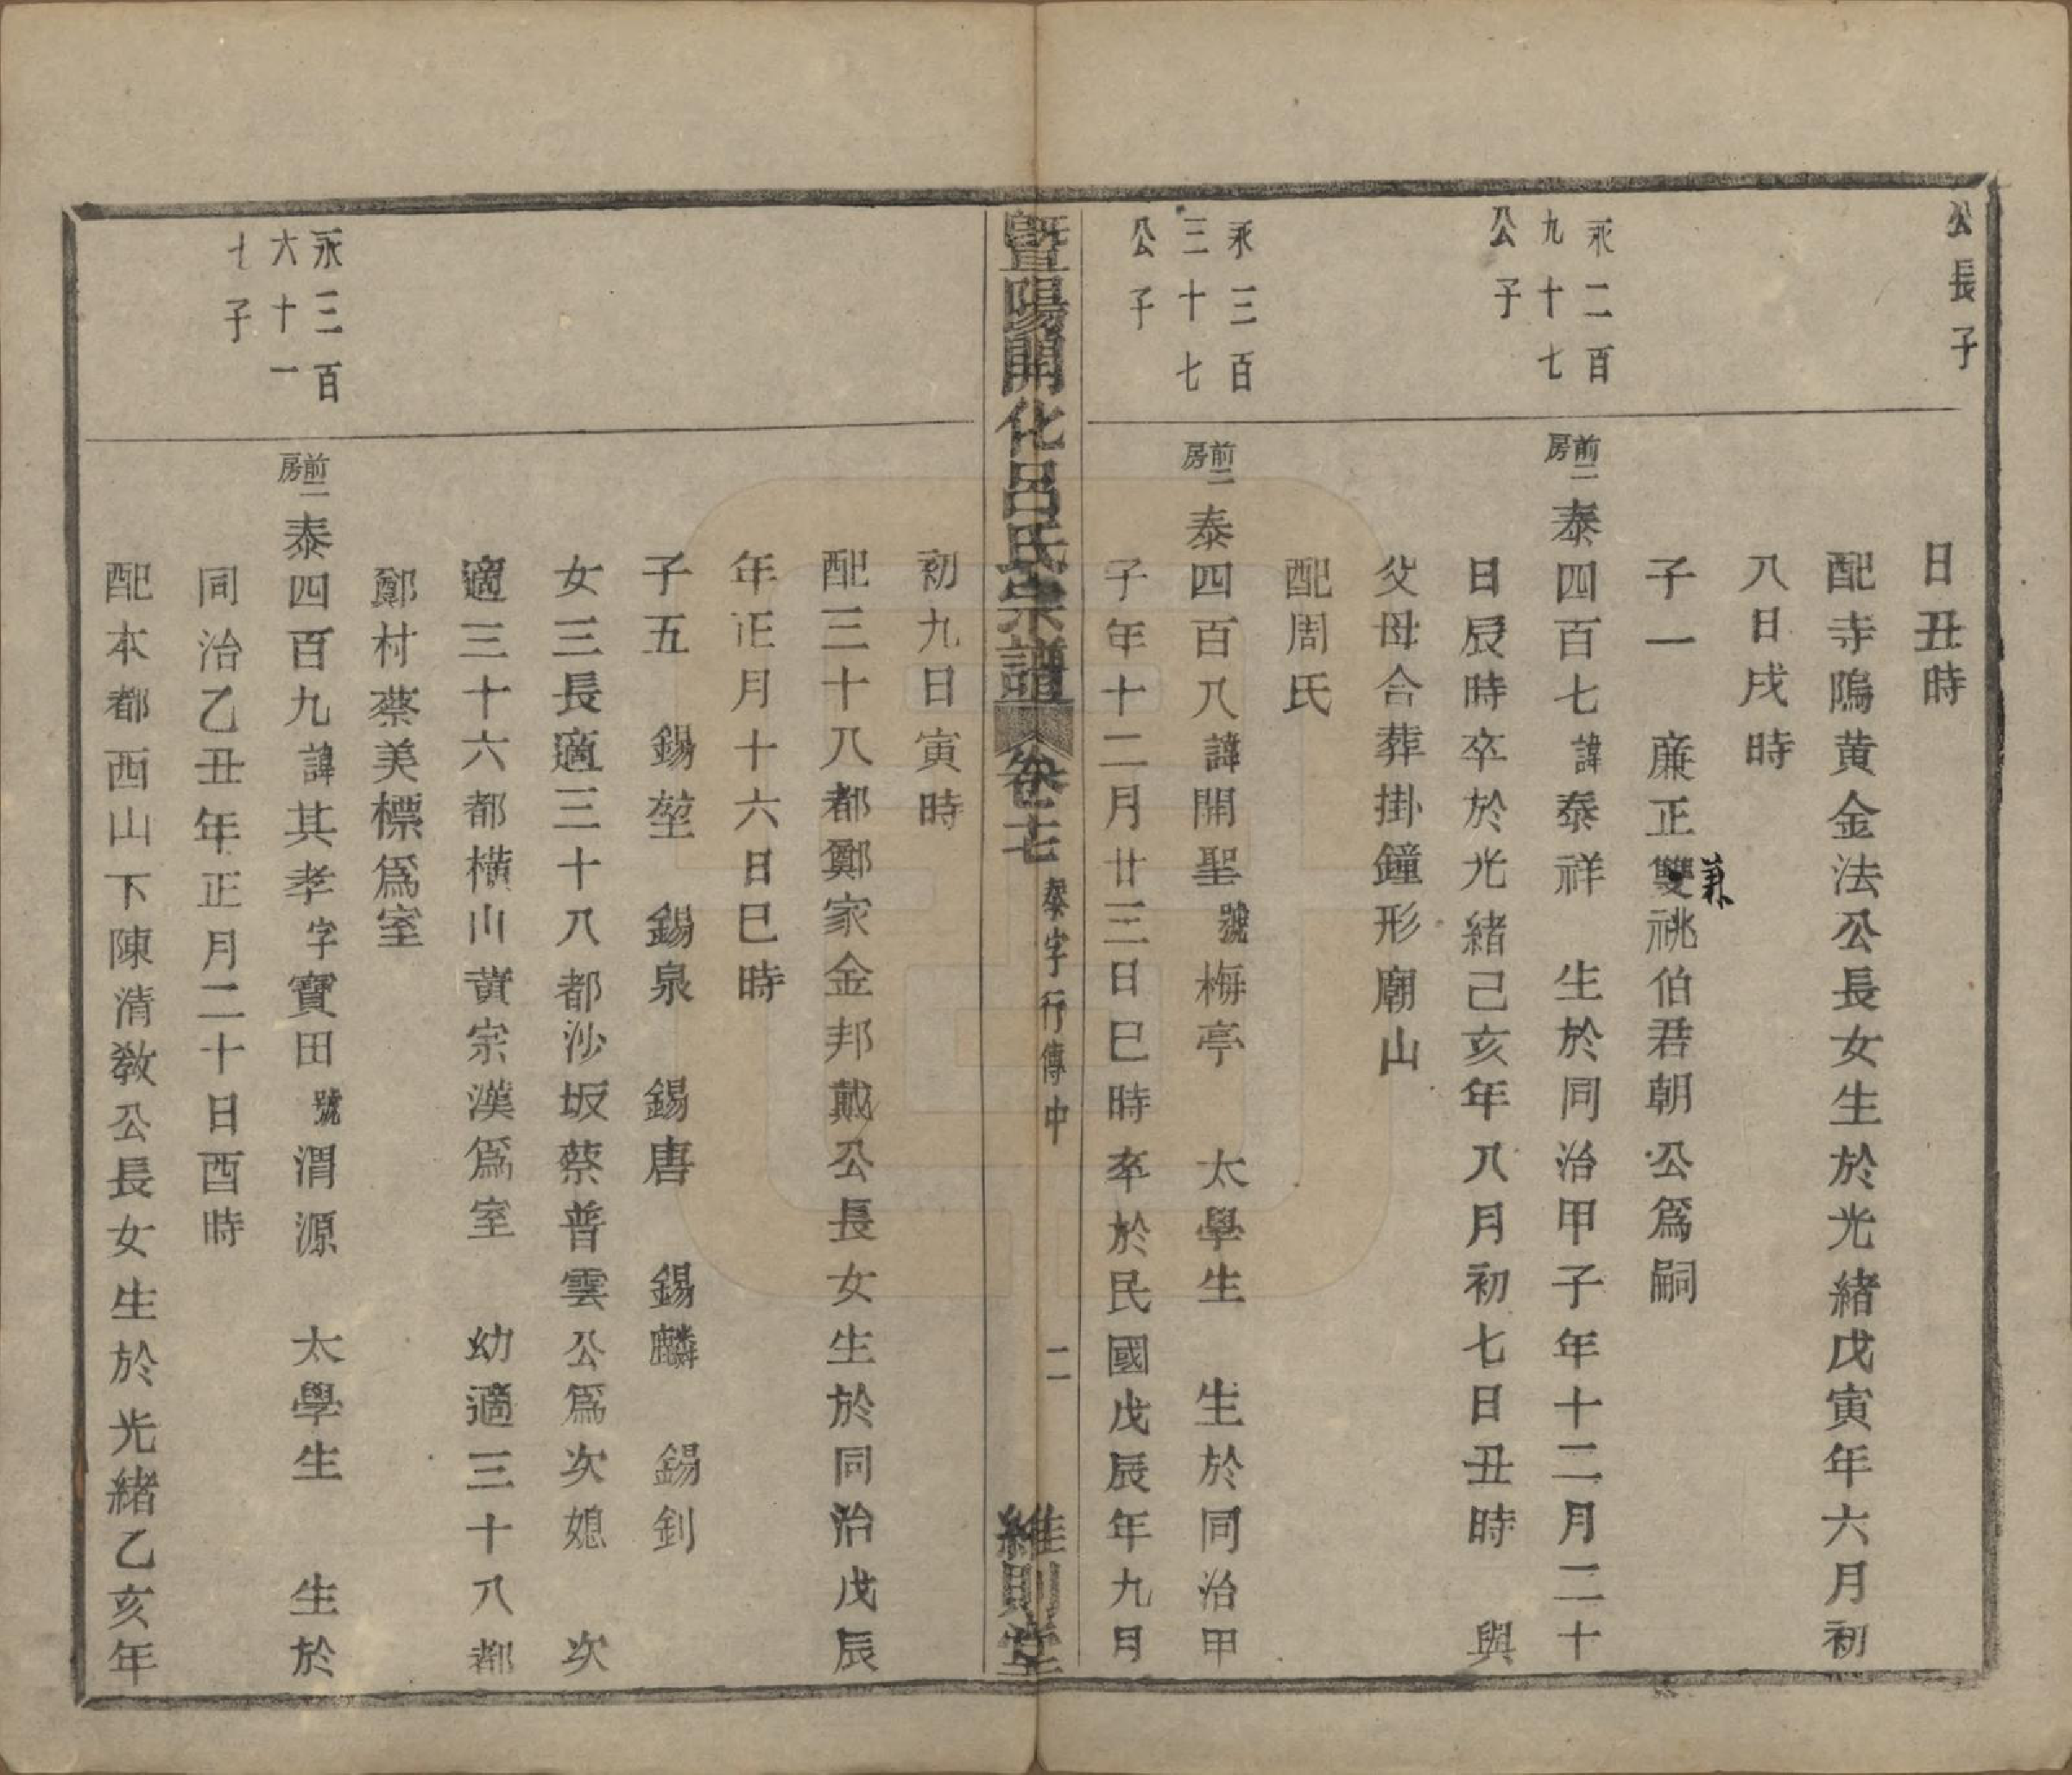 公長子
日丑時
配寺隖黄金法公長女生於光緒戊寅年六月初
八日戌時
子一　廉正兼雙祧伯君朝公爲嗣
永二百
九十七
公子
前二房泰四百七諱泰祥　生於同治甲子年十二月二十
日辰時卒於光緒己亥年八月初七日丑時　與
父母合葬掛鐘形廟山
配周氏
永三百
三十七
公子
前二房泰四百八諱開聖號梅亭　太學生　生於同治甲
子年十二月廿三日巳時卒於民國戊辰年九月
暨陽開化呂氏宗譜　卷十七　泰字行傳中　二　維則堂
初九日寅時
配三十八都鄭家金邦戴公長女生於同治戊辰
年正月十六日巳時
子五　錫堃　錫泉　錫唐　錫麟　錫釗
女三長適三十八都沙坂蔡普雲公爲次媳　次
適三十六都橫山黄宗漢爲室　幼適三十八都
鄭村蔡美標爲室
永三百
六十一
七子
前二房泰四百九諱其孝字寶田號渭源　太學生　生於
同治乙丑年正月二十日酉時
配本都西山下陳清教公長女生於光緒乙亥年